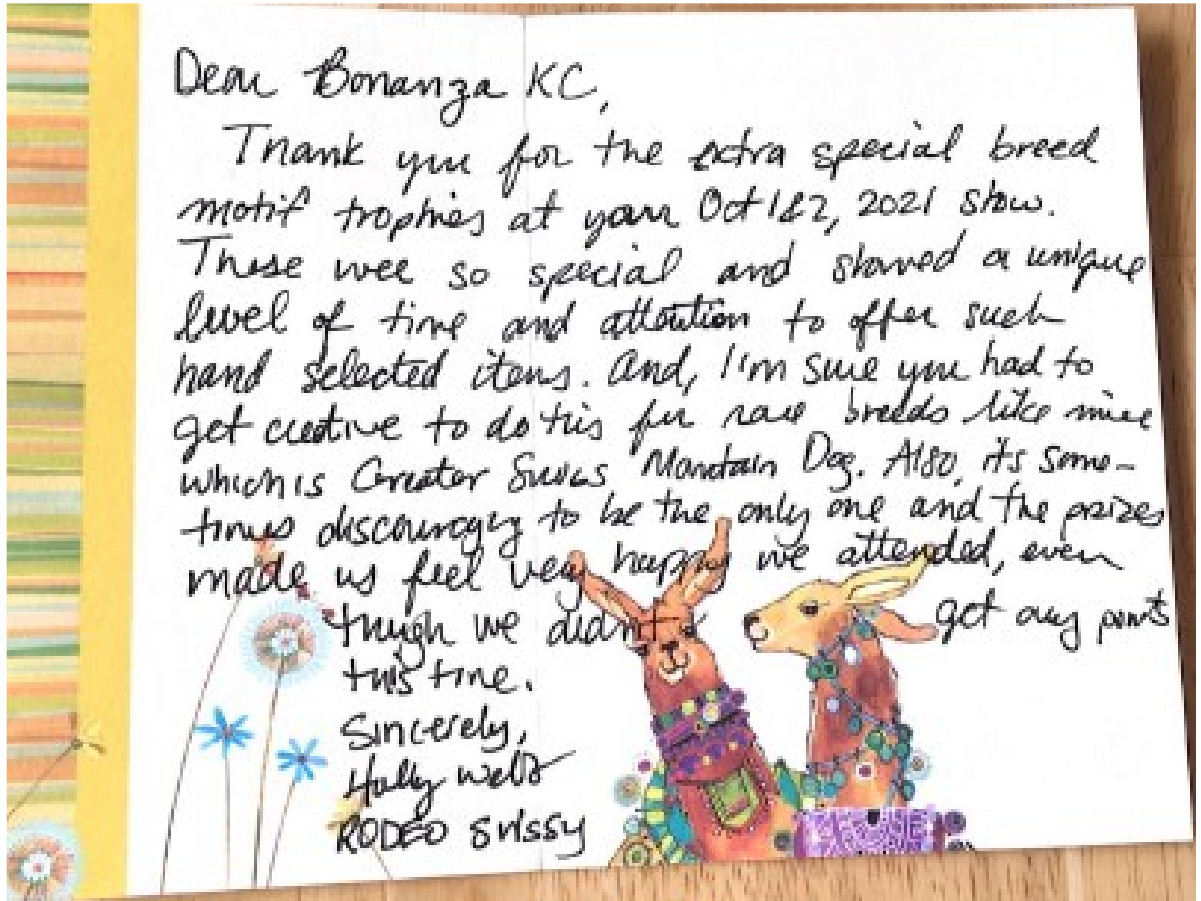 Dear Bonanza KC,
Thank you for the extra special breed
motif trophies at your Oct 1&2, 2021 show.
These wee so special and showed a unique
level of time and attention to offer such
hand selected items. And, I'm sure you had to
get creative to do this for rare breeds like mine
which is Greater Swiss Mountain Dog. Also, its some-
times discouraging to be the only one and the prizes
made us feel very happy we attended, even
though we didn't get any points
this time.
Sincerely,
Holly
RODEO Swissy